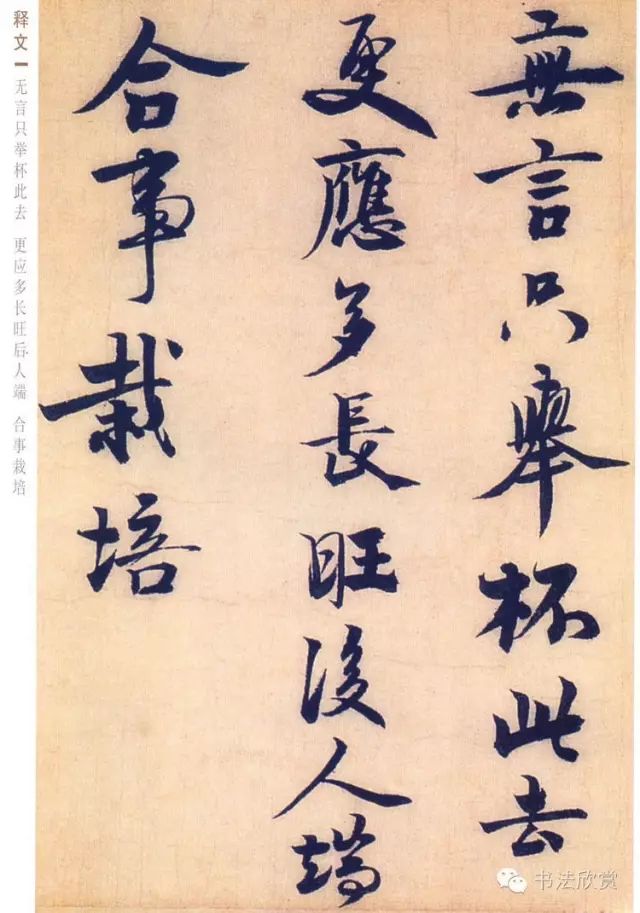 無言只舉杯此去
更應多長旺後人端
合事栽培
释文 无言只举杯此去 更应多长旺后人端 合事栽培
书法欣赏